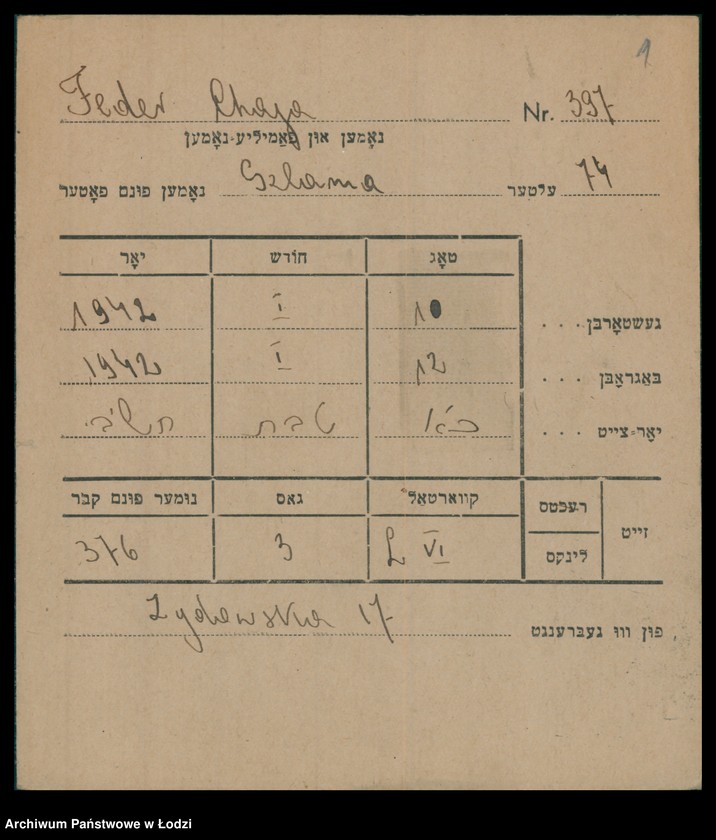 1
Feder Chaja Nr. 397
נאָמען און פאַמיליע-נאָמען
נאָמען פונם פאָטער Szlama עלטער 74
טאָג חודש יאָר
געשטאָרבן . . . 10 I 1942
באַגראָבן . . . 12 I 1942
יאָר-צייט . . . כ"א טבת תש"ב
זייט רעכטס לינקס קוואַרטאַל גאס נומער פונם קבר
L VI 3 376
פון וואו געברענגט Zydowska 17
Archiwum Państwowe w Łodzi